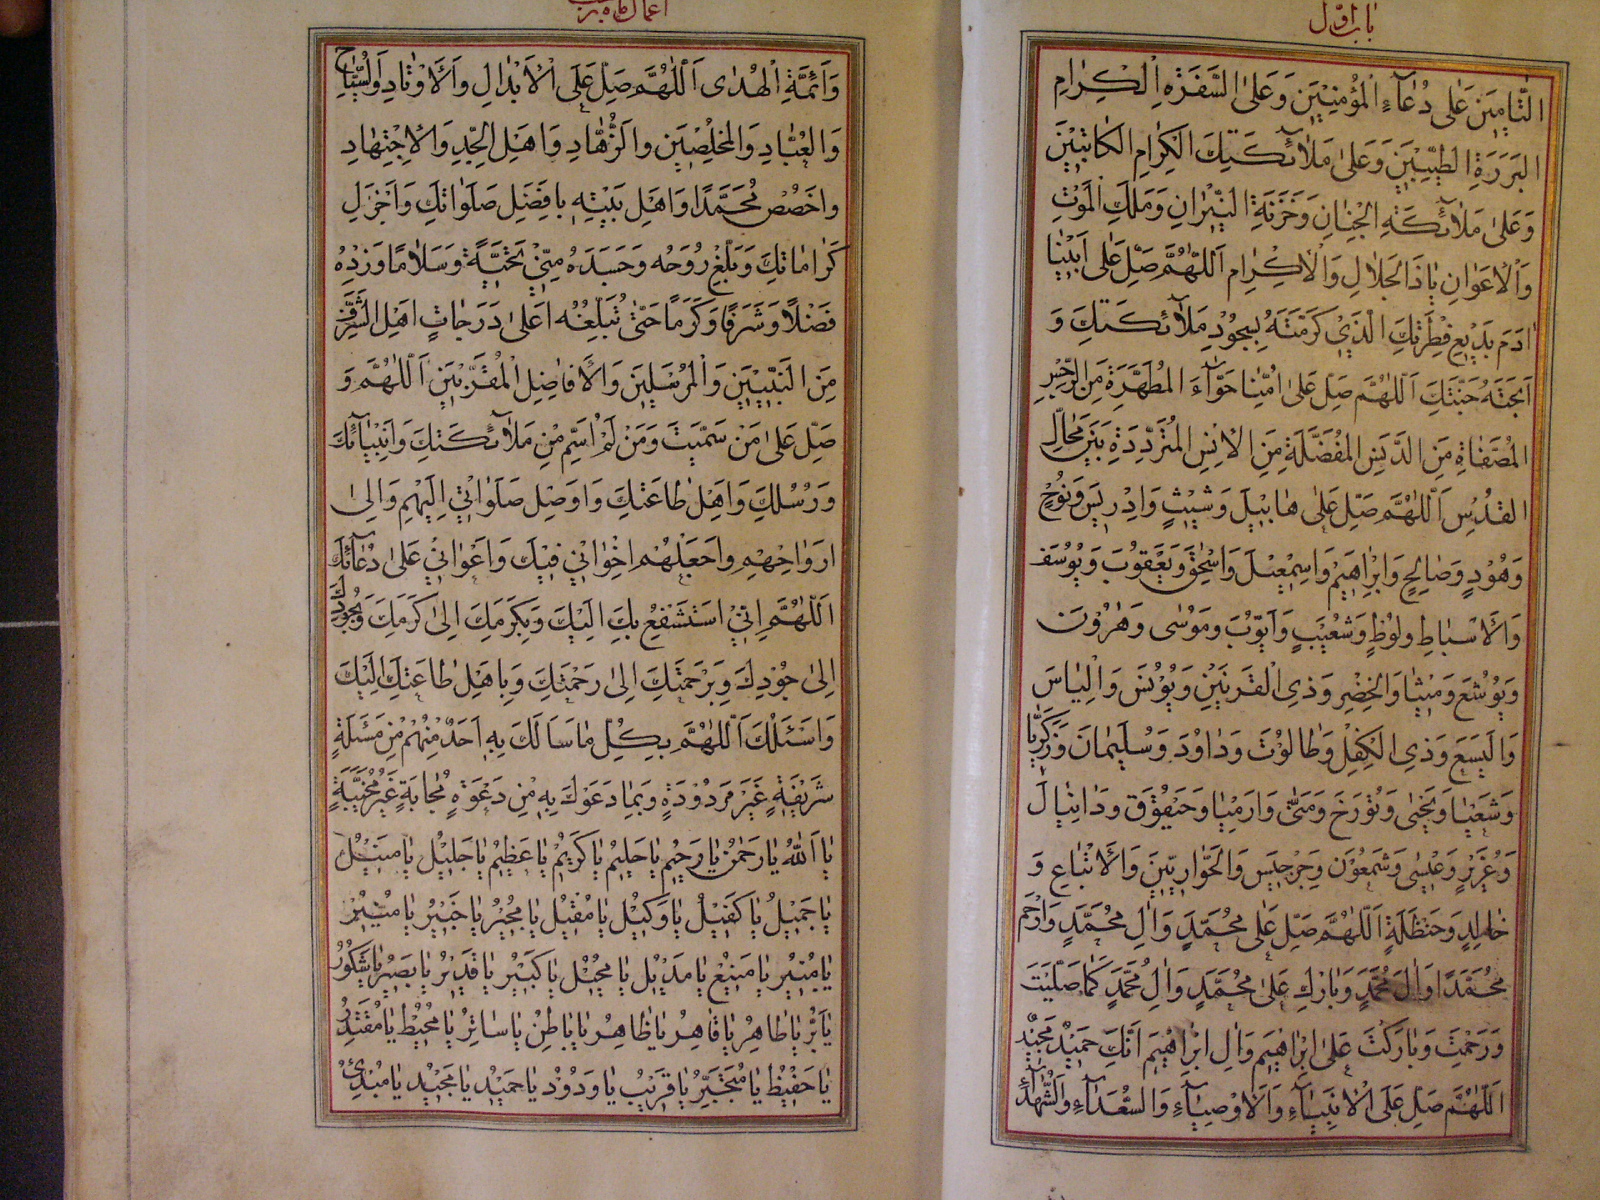 باب اول
التّامين على دُعآءِ المؤمنين وعلى السَّفَرَةِ الكِرام
البَرَرَةِ الطّيّبين وعلى ملآئكتك الكِرام الكاتبين
وعلى ملآئكةِ الجِنانِ وخَزَنَةِ النّيرانِ وملكِ الموتِ
والأعوانِ يا ذا الجلالِ والاكرام اَللّهمّ صلّ على ابينا
ادم بديع فِطرتك الّذي كرّمته بسجودِ ملآئكتك و
ابحته جنّتك اَللّهمّ صلّ على امّنا حوّآءَ المطهّرة من الرّجس
المصفّاة من الدّنس المفضّلة من الانس المتردّدة بين محالّ
القدس اَللّهمّ صلّ على هابيل وشيث وادريس ونوح
وهود وصالح وابراهيم واسمعيل واسحق ويعقوب ويوسف
والأسباط ولوط وشعيب وايّوب وموسى وهرون
ويوشع وميشا والخضر وذي القرنين ويونس والياس
واليسع وذي الكفل وطالوت وداود وسليمان وزكريّا
وشعيا ويحيى وتورخ ومتّى وارميا وحيقوق ودانيال
وعزير وعيسى وشمعون وجرجيس والحواريّين والأتباع و
خالد وحنظلة اَللّهمّ صلّ على محمّد وال محمّد وارحم
محمّدا وال محمّد وبارك على محمّد وال محمّد كما صلّيت
ورحمت وباركت على ابراهيم وال ابراهيم انّك حميد مجيد
اَللّهمّ صلّ على الانبيآءِ والاوصيآءِ والسّعدآءِ والشّهدآءِ
اعمال ماه رجب
وائمّة الهدى اَللّهمّ صلّ على الابدال والاوتاد والسّيّاح
والعبّاد والمخلصين والزّهّاد واهل الجدّ والاجتهاد
واخصص محمّدا واهل بيته بافضل صلواتك واجزل
كراماتك وبلّغ روحه وجسده منّي تحيّة وسلاما وزده
فضلا وشرفا وكرما حتّى تبلّغه اعلى درجات اهل الشّرف
من النّبيّين والمرسلين والافاضل المقرّبين اَللّهمّ و
صلّ على من سمّيت ومن لم اسمّ من ملآئكتك وانبيآئك
ورسلك واهل طاعتك واوصل صلواتي اليهم والى
ارواحهم واجعلهم اخواني فيك واعواني على دعآئك
اَللّهمّ انّي استشفع بك اليك وبكرمك الى كرمك وبجودك
الى جودك وبرحمتك الى رحمتك وباهل طاعتك اليك
واسئلك اَللّهمّ بكلّ ما سالك به احد منهم من مسئلة
شريفة غير مردودة وبما دعوك به من دعوة مجابة غير مخيّبة
يا اَللهُ يا رحمن يا رحيم يا حليم يا كريم يا عظيم يا جليل يا منيل
يا جميل يا كفيل يا وكيل يا مقيل يا مجير يا خبير يا منير
يا مبير يا منيع يا مديل يا محيل يا كبير يا قدير يا بصير يا شكور
يا برّ يا طاهر يا قاهر يا ظاهر يا باطن يا ساتر يا محيط يا مقتدر
يا حفيظ يا متجبّر يا قريب يا ودود يا حميد يا مجيد يا مبدئ